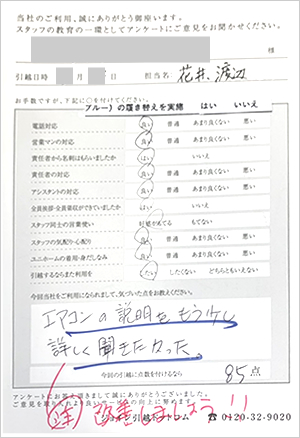 当社のご利用、誠にありがとう御座います。
スタッフの教育の一環としてアンケートにご意見をお聞かせください。
様
引越日時 月 日 担当名 花井、渡辺
お手数ですが、下記に○を付けてください。
ブルー）の履き替えを実施 はい いいえ
電話対応 良い 普通 あまり良くない 悪い
営業マンの対応 良い 普通 あまり良くない 悪い
責任者から名刺はもらいましたか はい いいえ
責任者の対応 良い 普通 あまり良くない 悪い
アシスタントの対応 良い 普通 あまり良くない 悪い
全員挨拶・全員着帽ができていましたか はい いいえ
スタッフ同士の言葉使い 好感がもてる もてない
スタッフの気配り・心配り 良い 普通 あまり良くない 悪い
ユニホームの着用・身だしなみ 良い 普通 あまり良くない 悪い
引越しするならまた利用を したい したくない どちらともいえない
今回当社をご利用になられまして、気づいた点をお教えください。
エアコンの説明をもう少し
詳しく聞きたかった。
今回の引越に点数を付けるなら 85 点
アンケートにお答え頂きまして誠にありがとうございました。
改善しましょう!!
☎ 0120-32-9020